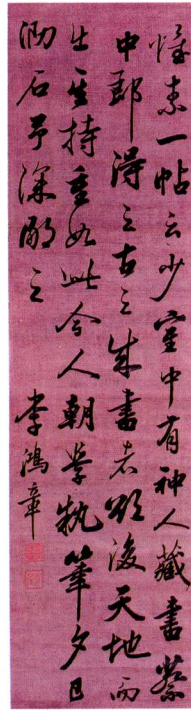 懷素一帖云少室中有神人藏書蔡
中郎得之古之成書者欲後天地而
生其持重如此今人朝學執筆夕已
勒石予深鄙之
李鴻章